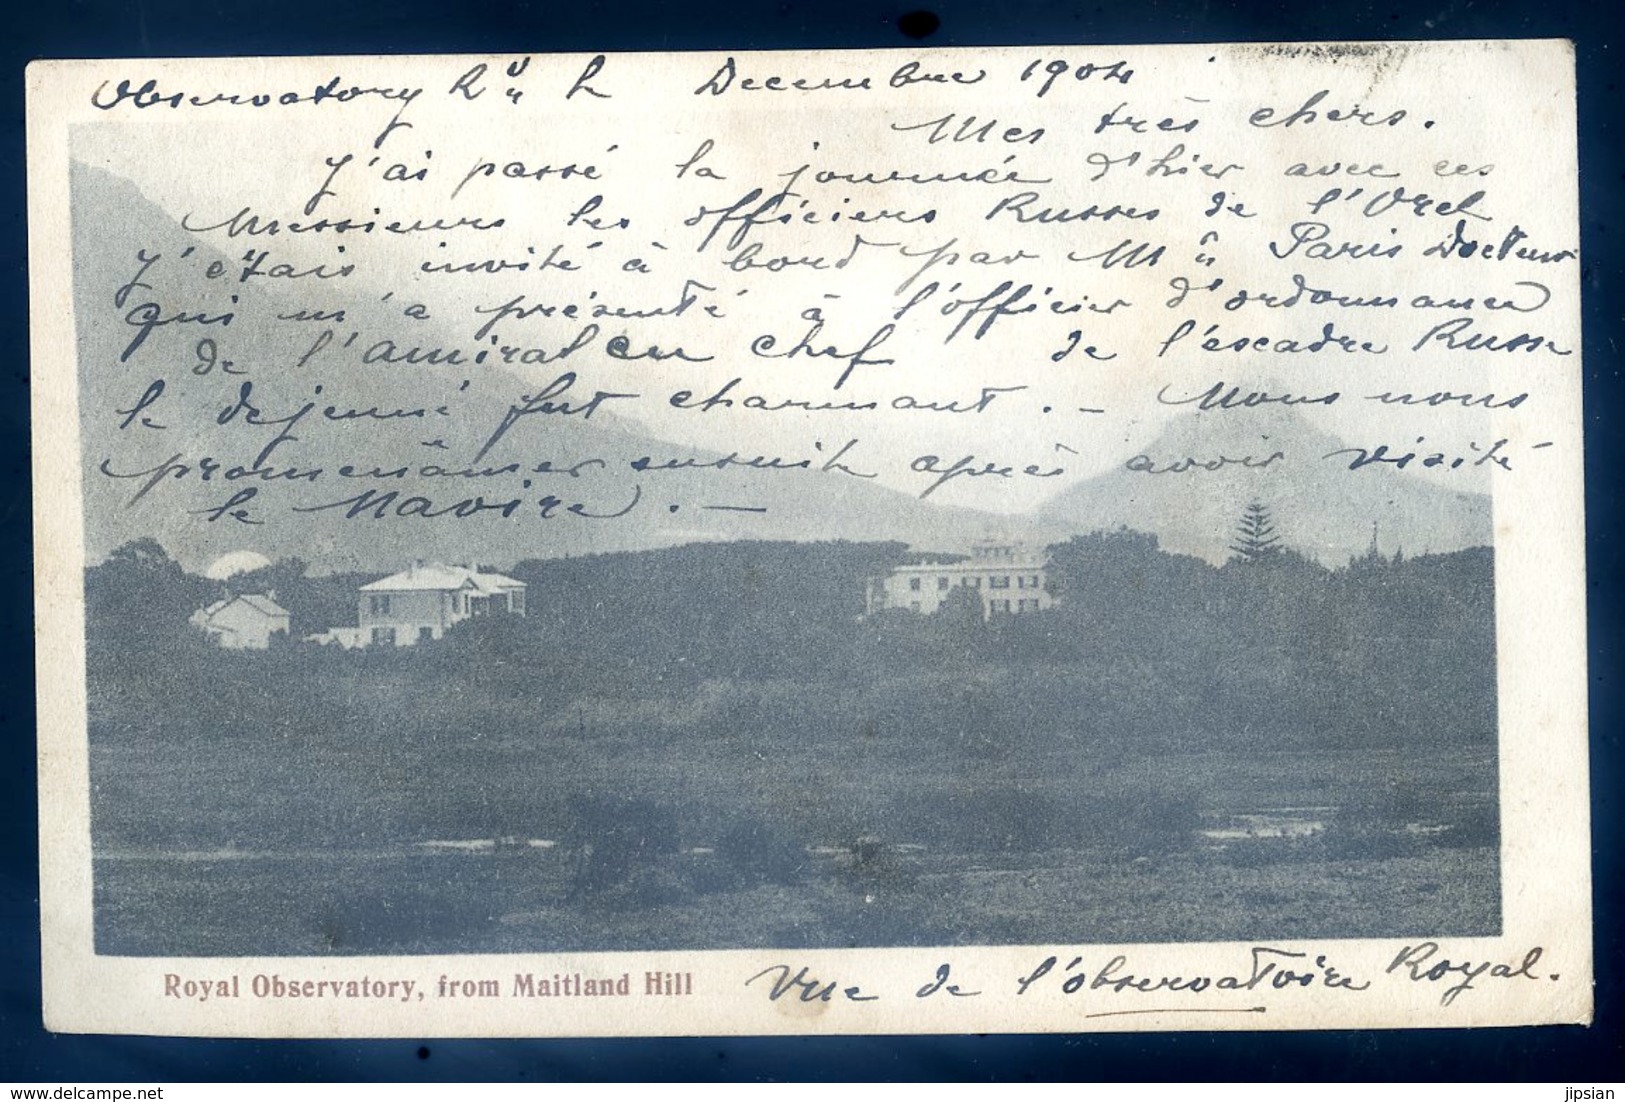 Observatory Rd le Decembre 1904
Mes très chers.
J'ai passé la journée d'hier avec ces
Messieurs les officiers Russes de l'Orel
J'étais invité à bord par Mr Paris Docteur
qui m'a présenté à l'officier d'ordonnance
de l'amiral en chef de l'escadre Russe
le dejeuné fut charmant. - Nous nous
promenâmes ensuite après avoir visité
le Navire. -
Royal Observatory, from Maitland Hill
Vue de l'observatoire Royal.
jipsian